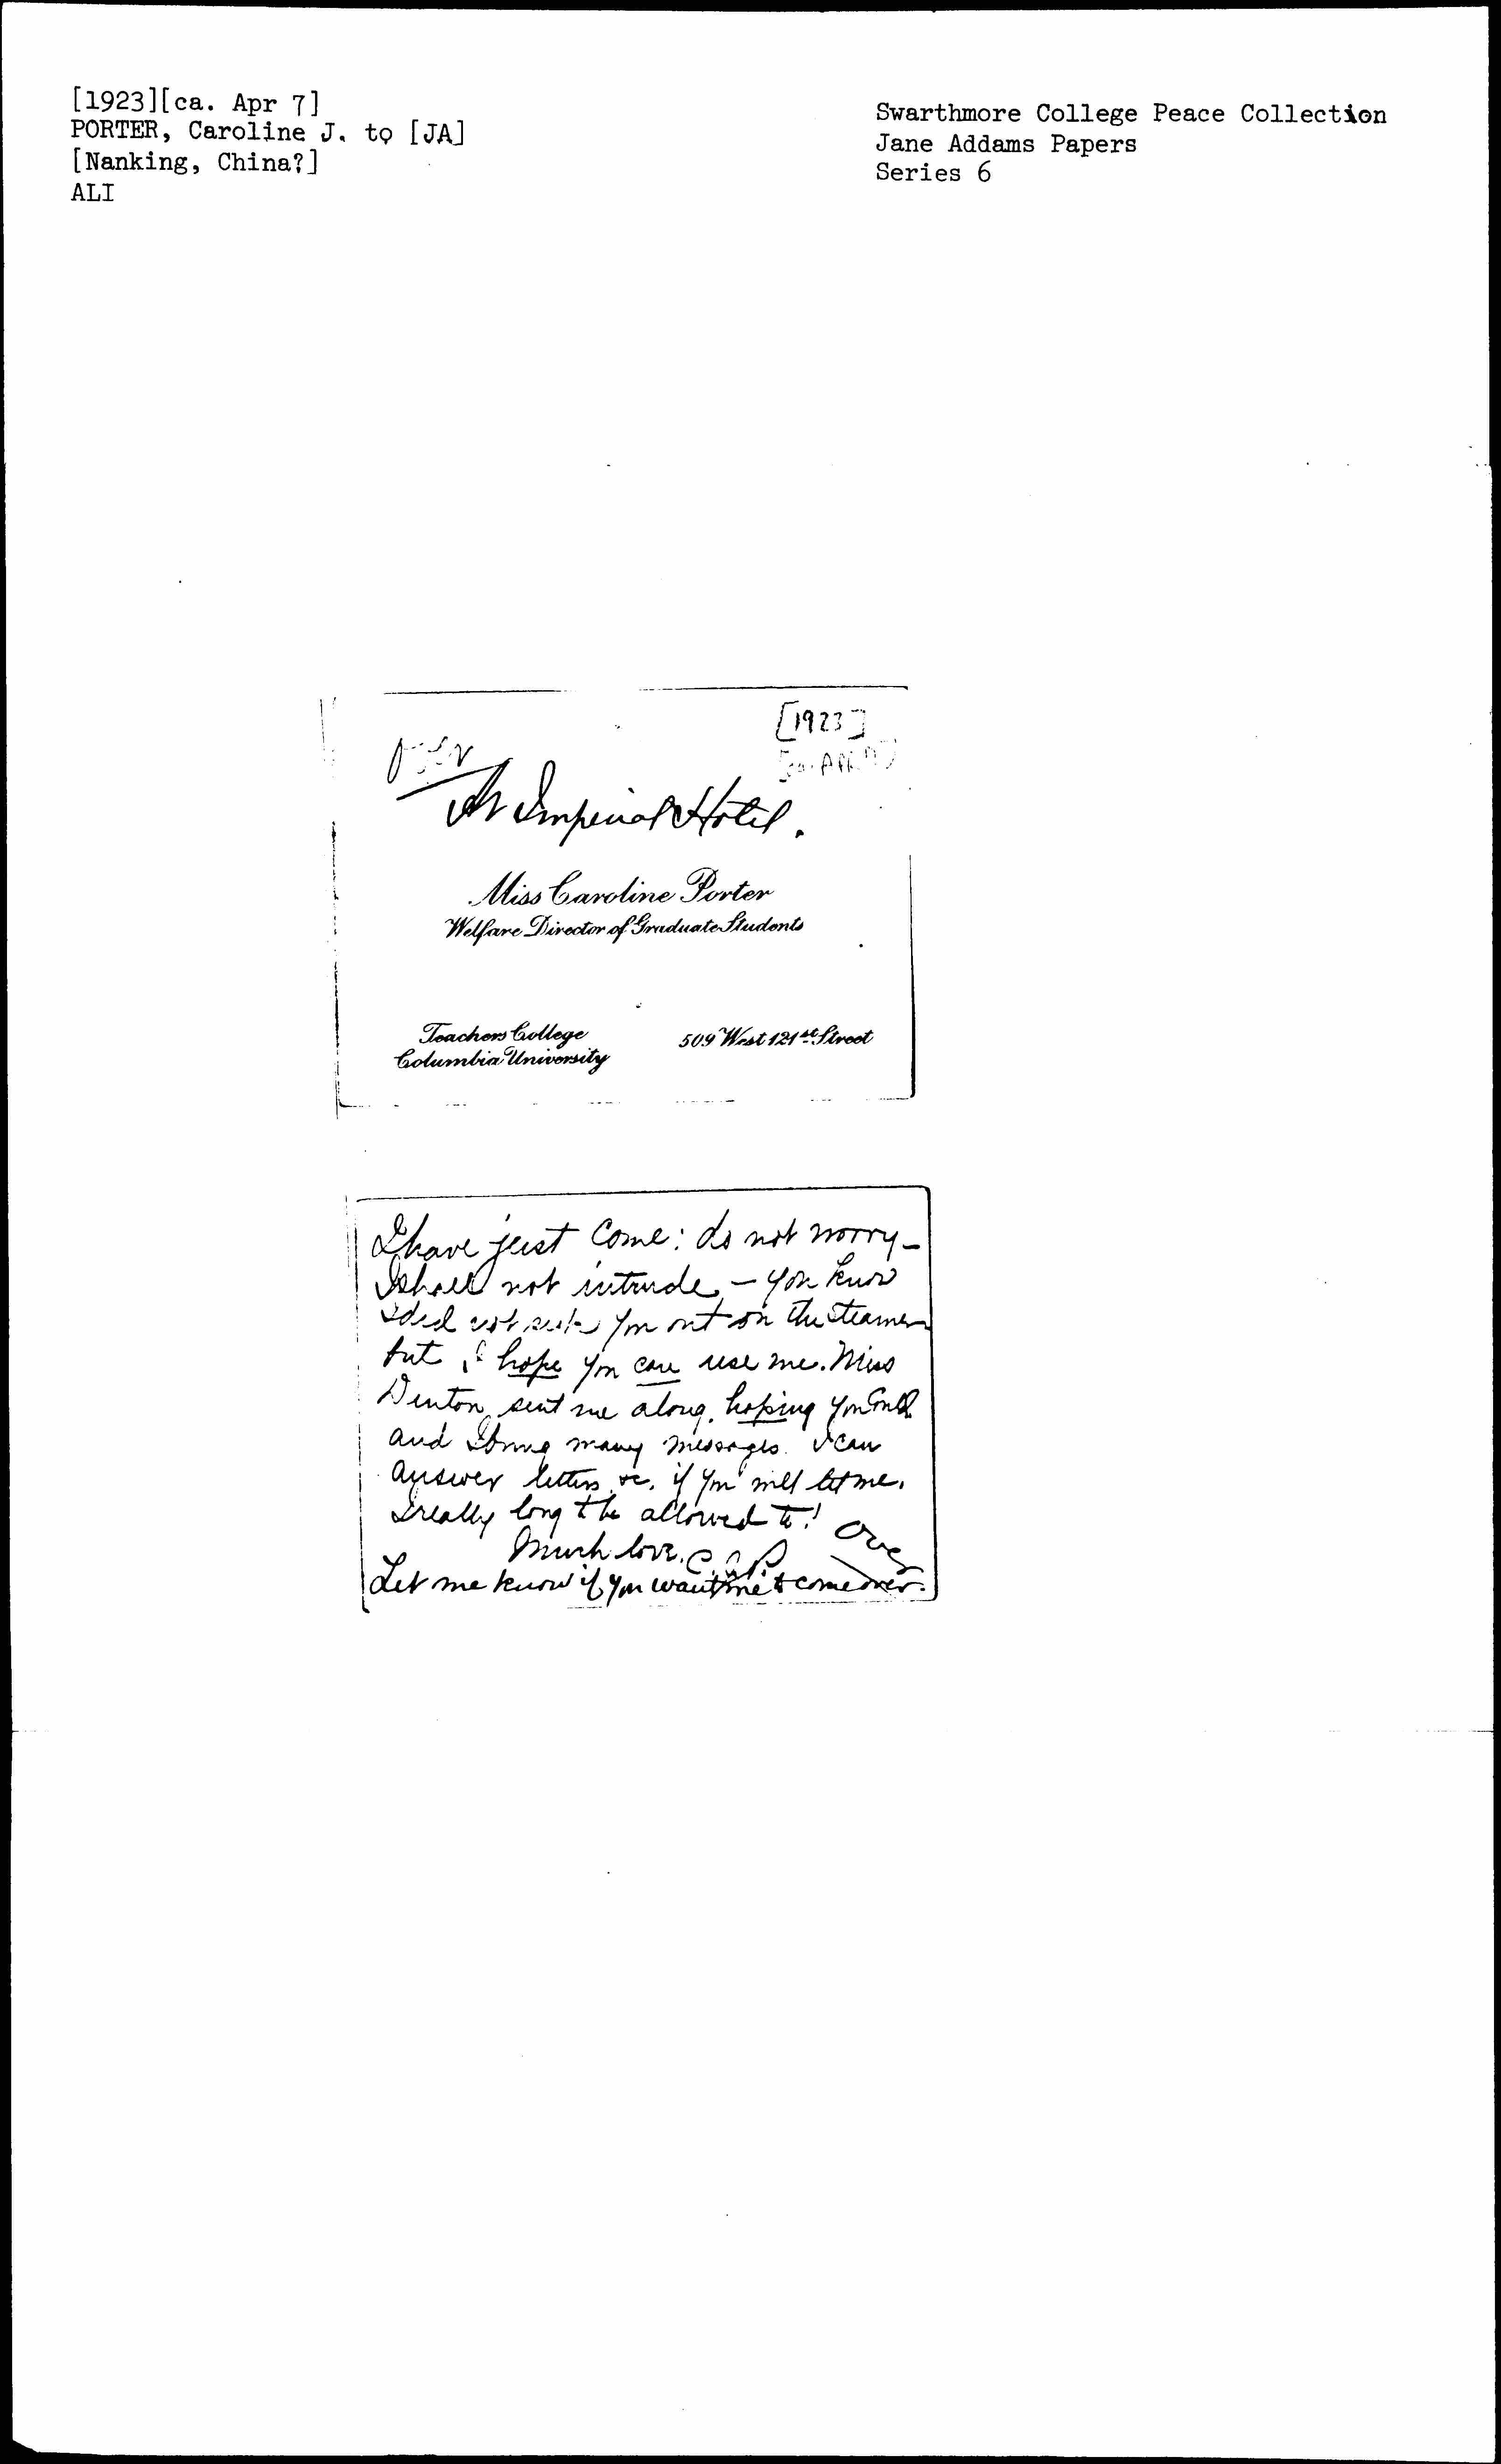 [1923][ca. Apr 7]
PORTER, Caroline J. to [JA]
[Nanking, China?]
ALI
Swarthmore College Peace Collection
Jane Addams Papers
Series 6
[1923]
At Imperial Hotel.
Miss Caroline Porter
Welfare Director of Graduate Students
Teachers College
Columbia University
509 West 121st Street
I have just come: do not worry -
I shall not intrude, - you know
I did not seek you out on the steamer
but I hope you can use me. Miss
Denton sent me along, hoping you could
and I bring many messages. I can
answer letters &c, if you will let me.
I really long to be allowed to!
Over
Much love. C.J.P.
Let me know if you want me to come over.